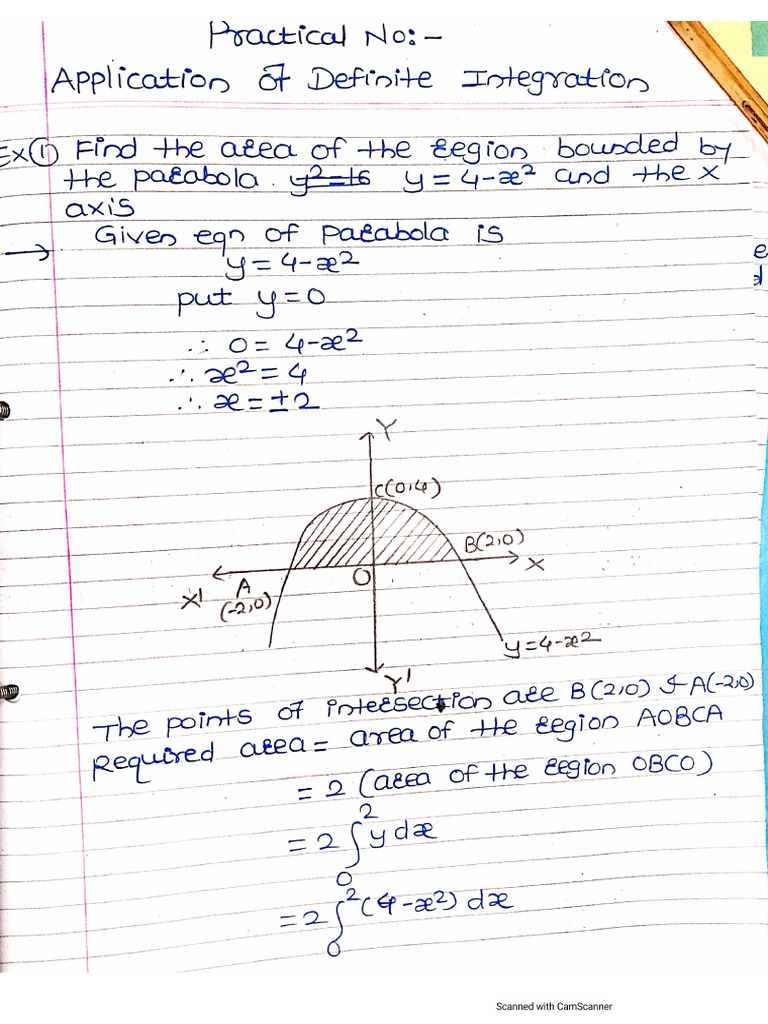 Practical No:-
Application of Definite Integration
Ex① Find the area of the region bounded by
the parabola. y²=16 y = 4-x² and the x
axis
→ Given eqn of parabola is
y = 4-x²
put y=0
∴ 0 = 4-x²
∴ x² = 4
∴ x = ±2
Y
C(0,4)
B(2,0)
X
O
X' A
(-2,0)
y=4-x²
Y'
The points of intersection are B(2,0) & A(-2,0)
Required area = area of the region AOBCA
= 2 (area of the region OBCO)
= 2 ∫₀² y dx
= 2 ∫₀² (4-x²) dx
Scanned with CamScanner